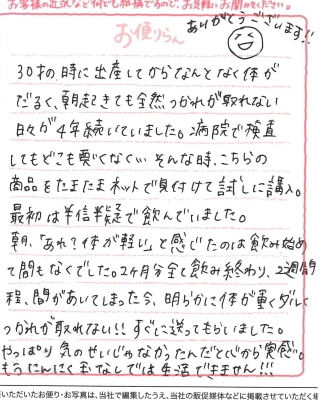 お客様の近況など何でも結構ですので、お気軽にお聞かせください。
ありがとうございます!!
お便りらん
30才の時に出産してからなんとなく体が
だるく、朝起きても全然つかれが取れない
日々が4年続いていました。病院で検査
してもどこも悪くなく… そんな時、こちらの
商品をたまたまネットで見付けて試しに購入。
最初は半信半疑で飲んでいました。
朝、「あれ?体が軽い」と感じたのは飲み始め
て間もなくでした。2ヶ月分全て飲み終わり、2週間
程、間があいてしまった今、明らかに体が重くダルく
つかれが取れない!! すぐに送ってもらいました。
やっぱり気のせいじゃなかったんだと心から実感。
もうにんにく玉なしでは生活できません!!!
いただいたお便り・お写真は、当社で編集したうえ、当社の販促媒体などに掲載させていただく場